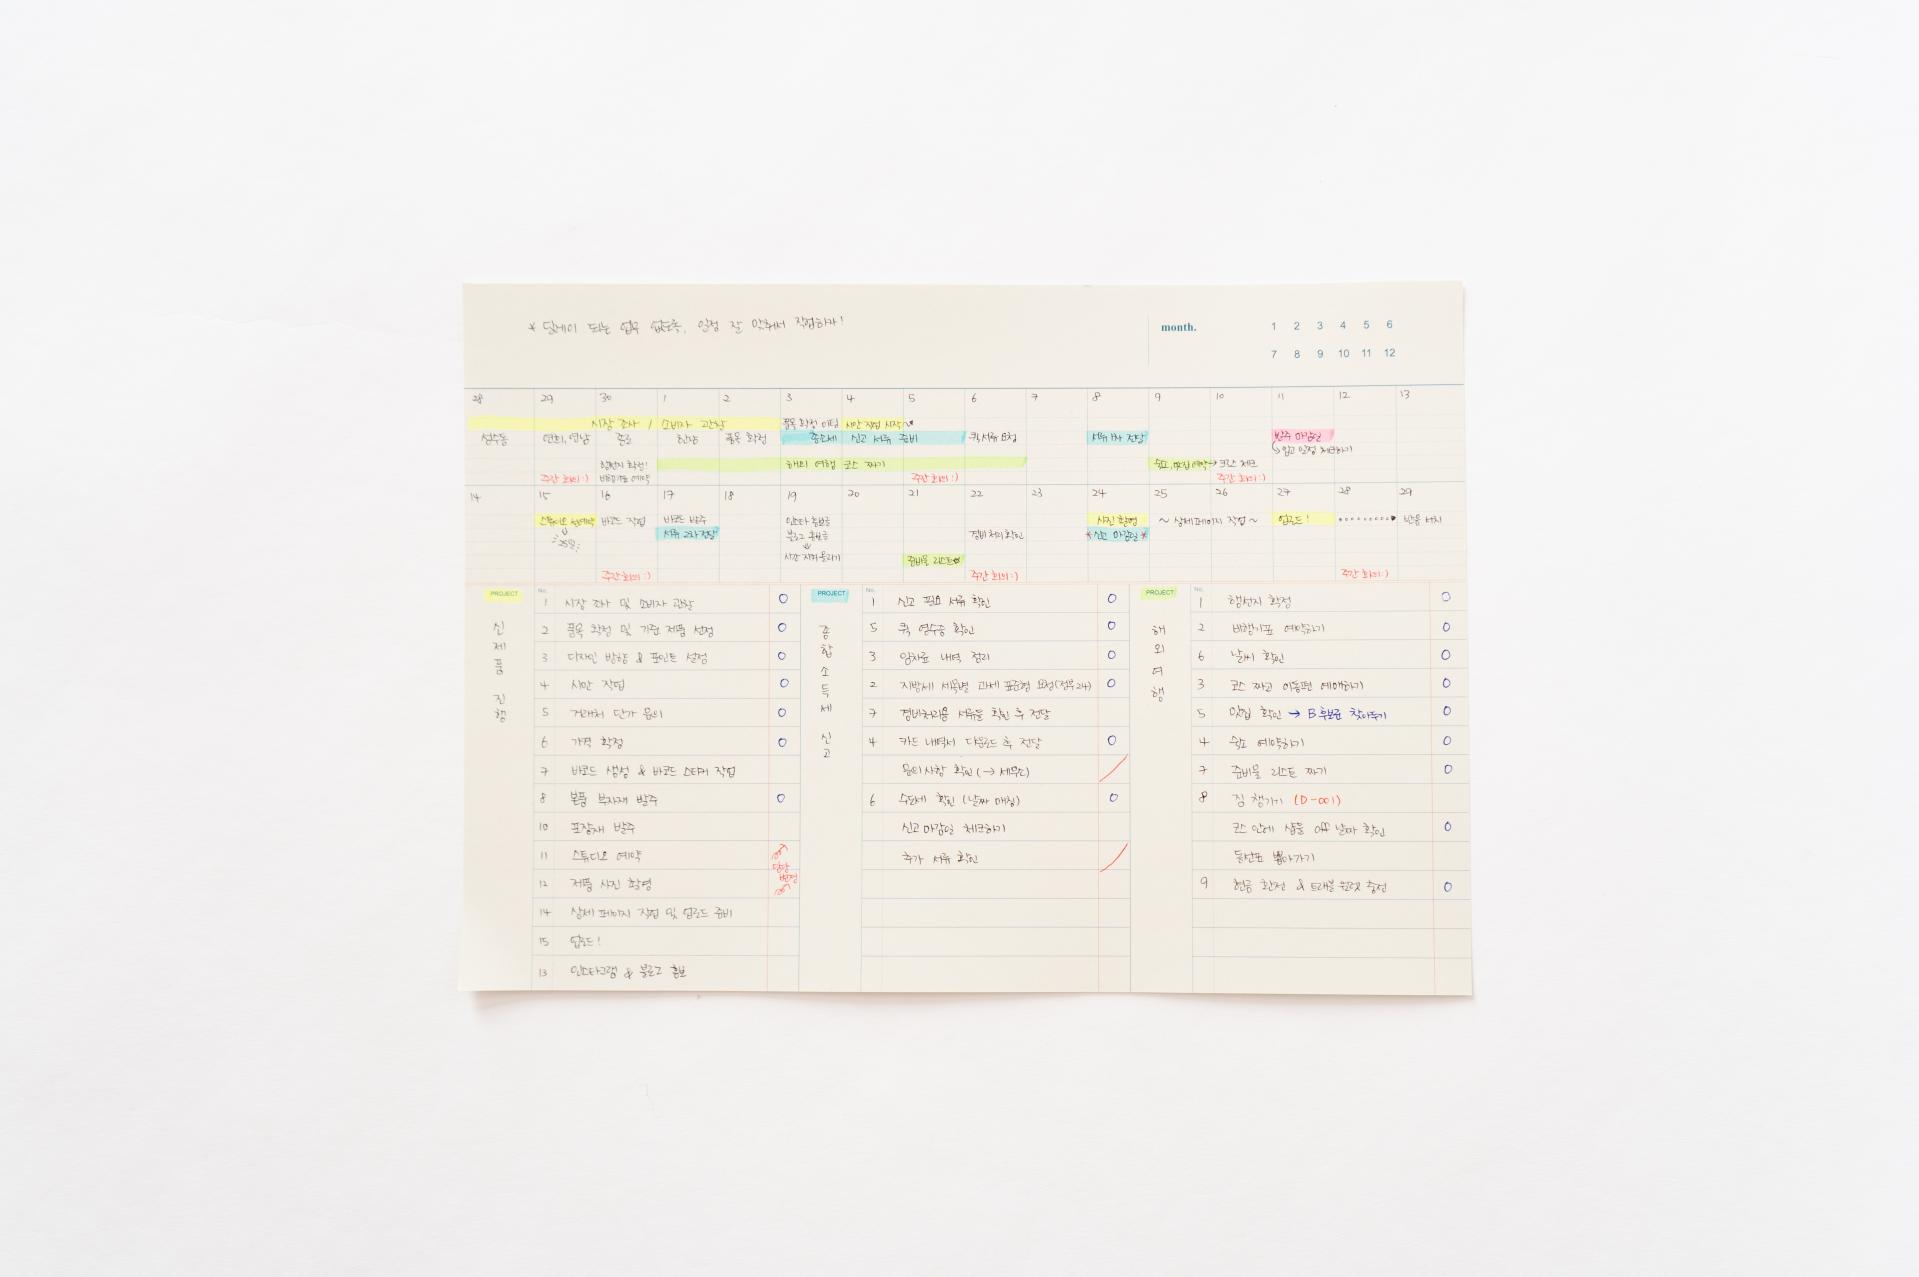 * 딜레이 되는 업무 없도록, 일정 잘 맞춰서 작업하자!
month.
1 2 3 4 5 6
7 8 9 10 11 12
28 29 30 1 2 3 4 5 6 7 8 9 10 11 12 13
시장 조사 / 소비자 관찰 품목 확정 미팅 시안 작업 시작~
성수동 연희, 연남 종로 한남 품목 확정 종소세 신고 서류 준비 퀵 서류 요청 서류 1차 전달 발주 마감일
입고 일정 체크하기
행선지 확정! 해외 여행 코스 짜기 숙소, 맛집 예약 → 코스 체크
주간 회의 :) 비행기표 예약 주간 회의 :) 주간 회의 :)
14 15 16 17 18 19 20 21 22 23 24 25 26 27 28 29
스튜디오 선예약 바코드 작업 바코드 발주 인스타 홍보글 사진 촬영 ~ 상세페이지 작업 ~ 업로드! 반응 서치
25일 서류 2차 전달 블로그 홍보글 경비처리 확인 *신고 마감일*
시간 지켜 올리기 준비물 리스트
주간 회의 :) 주간 회의 :) 주간 회의 :)
PROJECT
신제품 진행
No.
1 시장 조사 및 소비자 관찰 O
2 품목 확정 및 기준 제품 선정 O
3 디자인 방향 & 포인트 설정 O
4 시안 작업 O
5 거래처 단가 문의 O
6 가격 확정 O
7 바코드 생성 & 바코드 스티커 작업
8 본품 부자재 발주 O
10 포장재 발주
11 스튜디오 예약
담당 변경
12 제품 사진 촬영
14 상세 페이지 작업 및 업로드 준비
15 업로드!
13 인스타그램 & 블로그 홍보
PROJECT
종합소득세 신고
No.
1 신고 필요 서류 확인 O
5 퀵 영수증 확인 O
3 임차료 내역 정리 O
2 지방세 세목별 과세 표준형 요청(정부24) O
7 경비처리용 서류들 확인 후 전달
4 카드 내역서 다운로드 후 전달 O
문의사항 확인 (→ 세무소)
6 수도세 확인 (날짜 매칭) O
신고 마감일 체크하기
추가 서류 확인
PROJECT
해외여행
No.
1 행선지 확정 O
2 비행기표 예약하기 O
6 날씨 확인 O
3 코스 짜고 이동편 예매하기 O
5 맛집 확인 → B 후보군 찾아두기 O
4 숙소 예약하기 O
7 준비물 리스트 짜기 O
8 짐 챙기기 (D-001)
코스 안에 샵들 off 날짜 확인 O
동선표 뽑아가기
9 현금 환전 & 트래블 월렛 충전 O